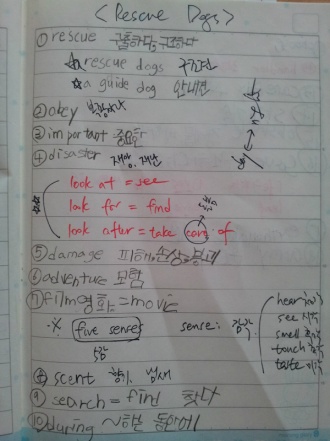 < Rescue Dogs >
① rescue 구출하다, 구조하다
☆ rescue dogs 구조견
☆ a guide dog 안내견
② obey 복종하다
③ important 중요한
④ disaster 재앙, 재난
look at = see
look for = find
look after = take care of
⑤ damage 피해, 손상
⑥ adventure 모험
⑦ film 영화 = movie
※ five senses sense: 감각
오감
hear
see 시각
smell 후각
touch 촉각
taste 미각
⑧ scent 향기, 냄새
⑨ search = find 찾다
⑩ during ~하는 동안에